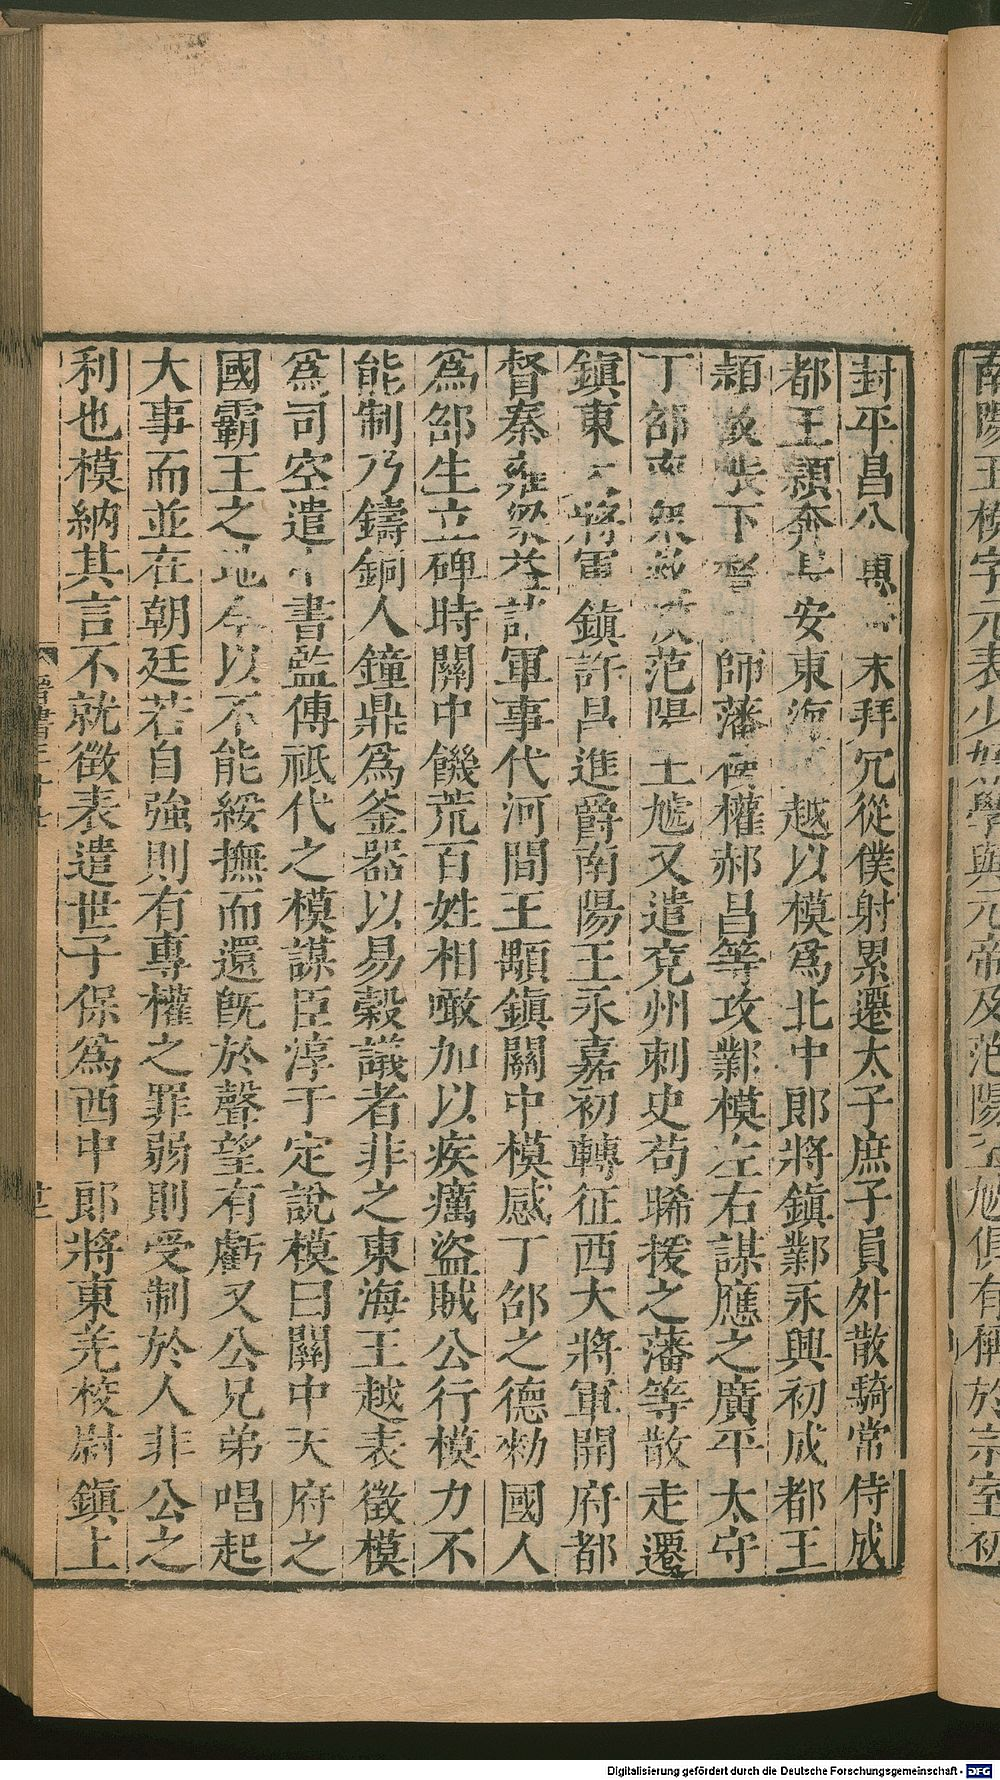 南陽王模字元表少好學與元帝及范陽王虓俱有稱於宗室初
封平昌公惠 末拜冗從僕射累遷太子庶子員外散騎常侍成
都王穎奔長安東海 越以模爲北中郎將鎮鄴永興初成都王
穎故帳下督 師藩 權郝昌等攻鄴模左右謀應之廣平太守
丁邵率衆救 范陽王虓又遣兗州刺史苟晞援之藩等散走遷
鎮東大將軍鎮許昌進爵南陽王永嘉初轉征西大將軍開府都
督秦雍梁益諸軍事代河間王顒鎮關中模感丁邵之德勑國人
爲邵生立碑時關中饑荒百姓相噉加以疾癘盜賊公行模力不
能制乃鑄銅人鐘鼎爲釜器以易穀議者非之東海王越表徵模
爲司空遣中書監傅祇代之模謀臣淳于定說模曰關中天府之
國霸王之地今以不能綏撫而還旣於聲望有虧又公兄弟唱起
大事而並在朝廷若自強則有專權之罪弱則受制於人非公之
利也模納其言不就徵表遣世子保爲西中郎將東羌校尉鎮上
晉書三十七
廿二
Digitalisierung gefördert durch die Deutsche Forschungsgemeinschaft - DFG